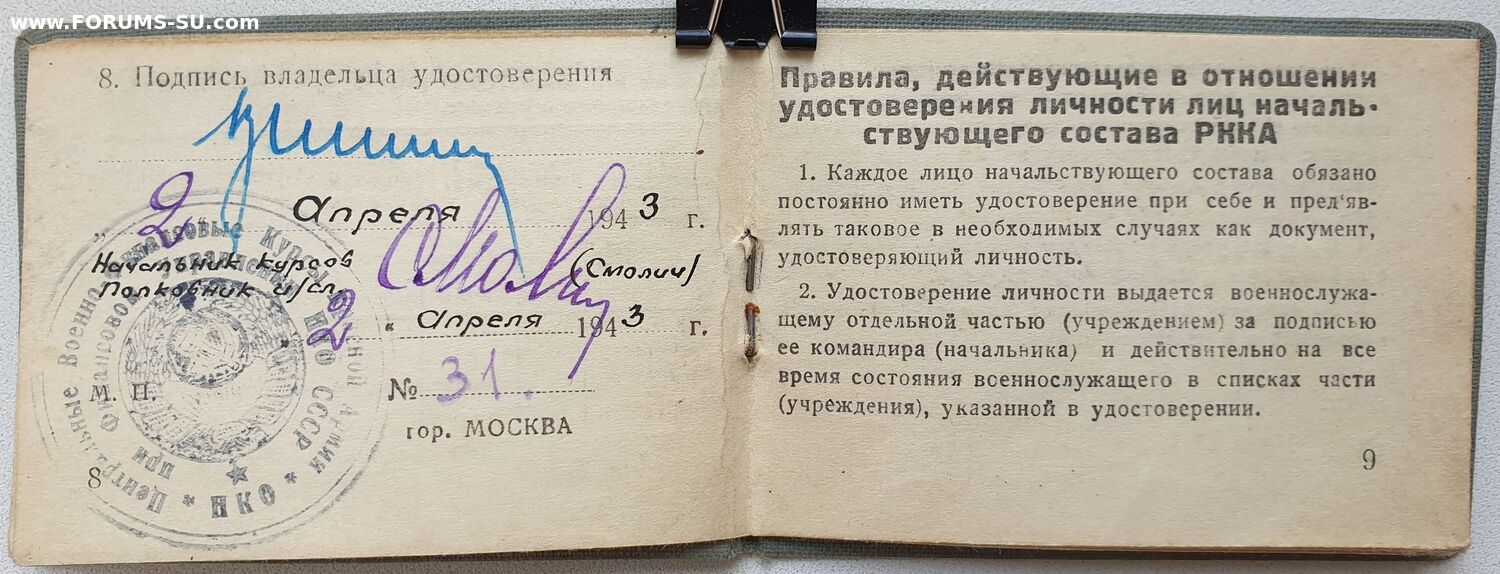 www.FORUMS-SU.com
8. Подпись владельца удостоверения
„ 2 “ Апреля 1943 г.
Начальник курсов
Полковник и/сл. (Смолич)
„ 2 “ Апреля 1943 г.
М. П. № 31.
гор. МОСКВА
Центральные Военно-Финансовые Курсы Красной Армии
при Финансовом управлении НКО СССР
НКО
8
Правила, действующие в отношении
удостоверения личности лиц началь-
ствующего состава РККА
1. Каждое лицо начальствующего состава обязано
постоянно иметь удостоверение при себе и пред‘яв-
лять таковое в необходимых случаях как документ,
удостоверяющий личность.
2. Удостоверение личности выдается военнослужа-
щему отдельной частью (учреждением) за подписью
ее командира (начальника) и действительно на все
время состояния военнослужащего в списках части
(учреждения), указанной в удостоверении.
9